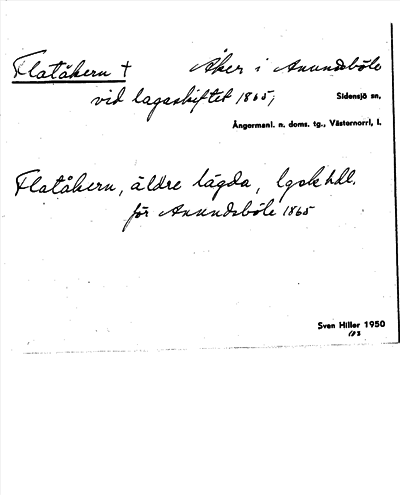 Flatåkern † Åker i Anundsböle
vid lagaskiftet 1865; Sidensjö sn,
Ångermanl. n. doms. tg., Västernorrl. l.
Flatåkern, äldre lägda, lgsk hdl.
för Anundsböle 1865
Sven Hiller 1950